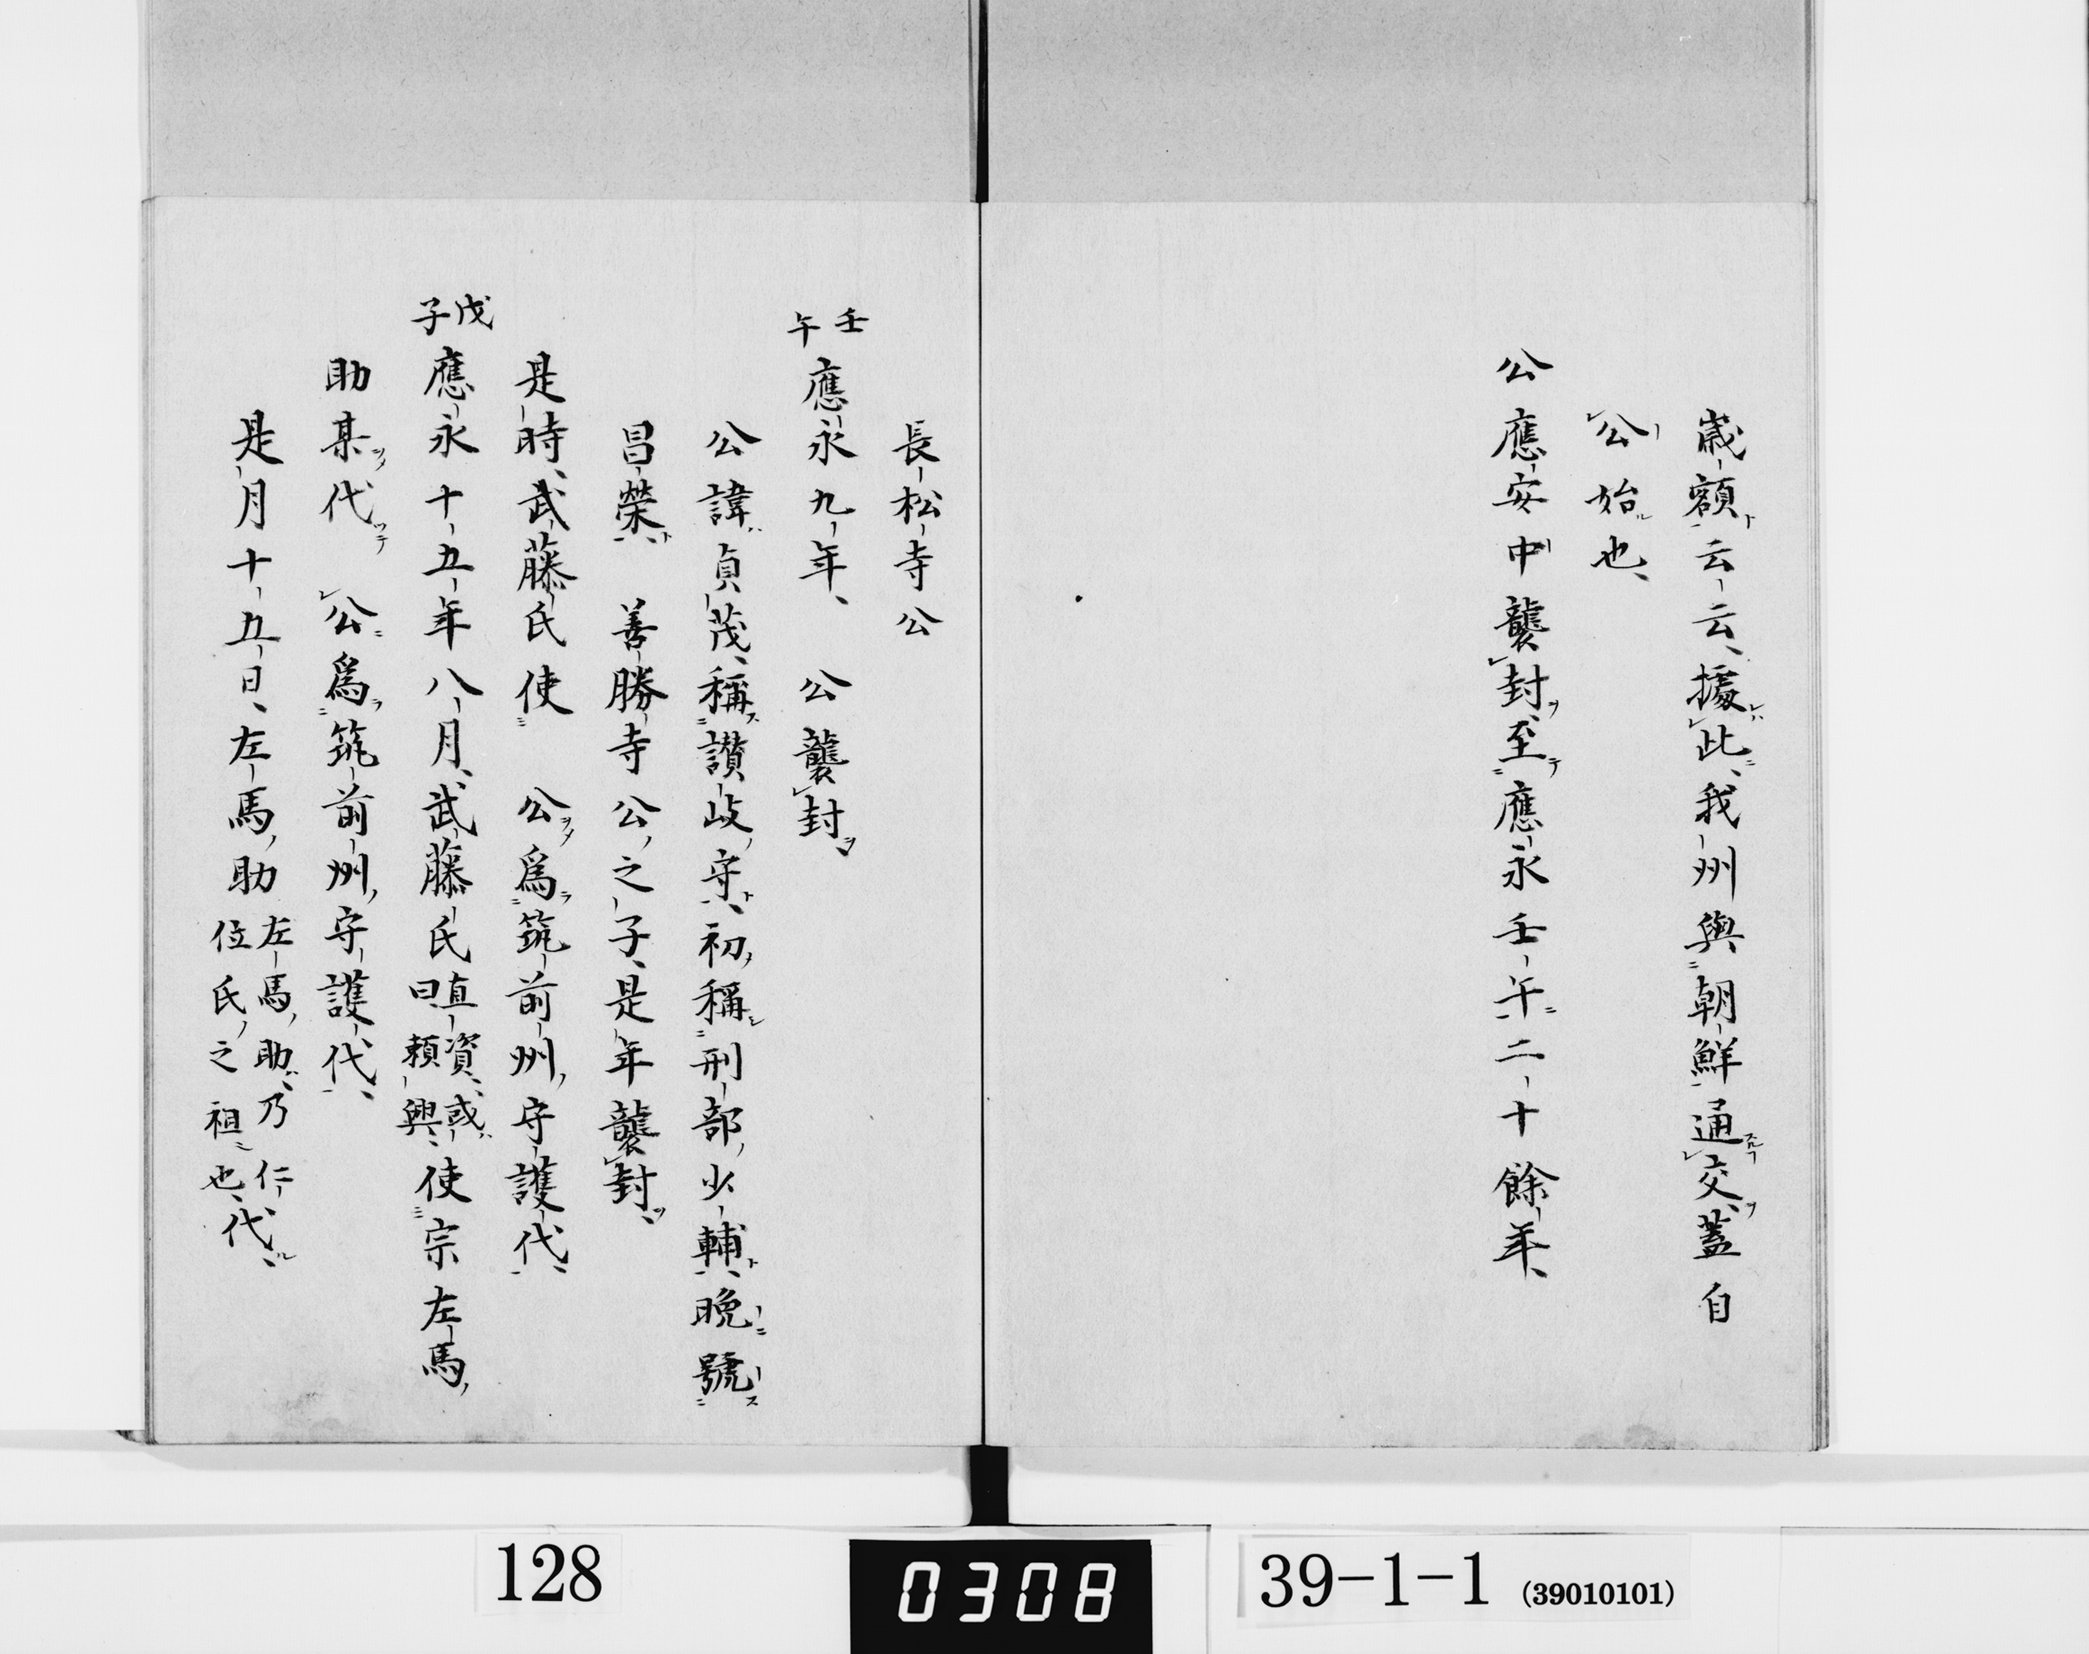 歳額云云、據此、我州與朝鮮通交、蓋自
公始也、
公應安中襲封、至應永壬午二十餘年、
長松寺公
壬午應永九年、 公襲封、
公諱貞茂、稱讃岐守、初稱刑部少輔、晩號
昌榮、 善勝寺公之子、是年襲封、
是時、武藤氏使 公爲筑前州守護代、
戊子應永十五年八月、武藤氏直資、或曰頼興、使宗左馬
助某代 公爲筑前州守護代、
是月十五日、左馬助左馬助、乃仁位氏之祖也、代、
128
0308
39-1-1 (39010101)